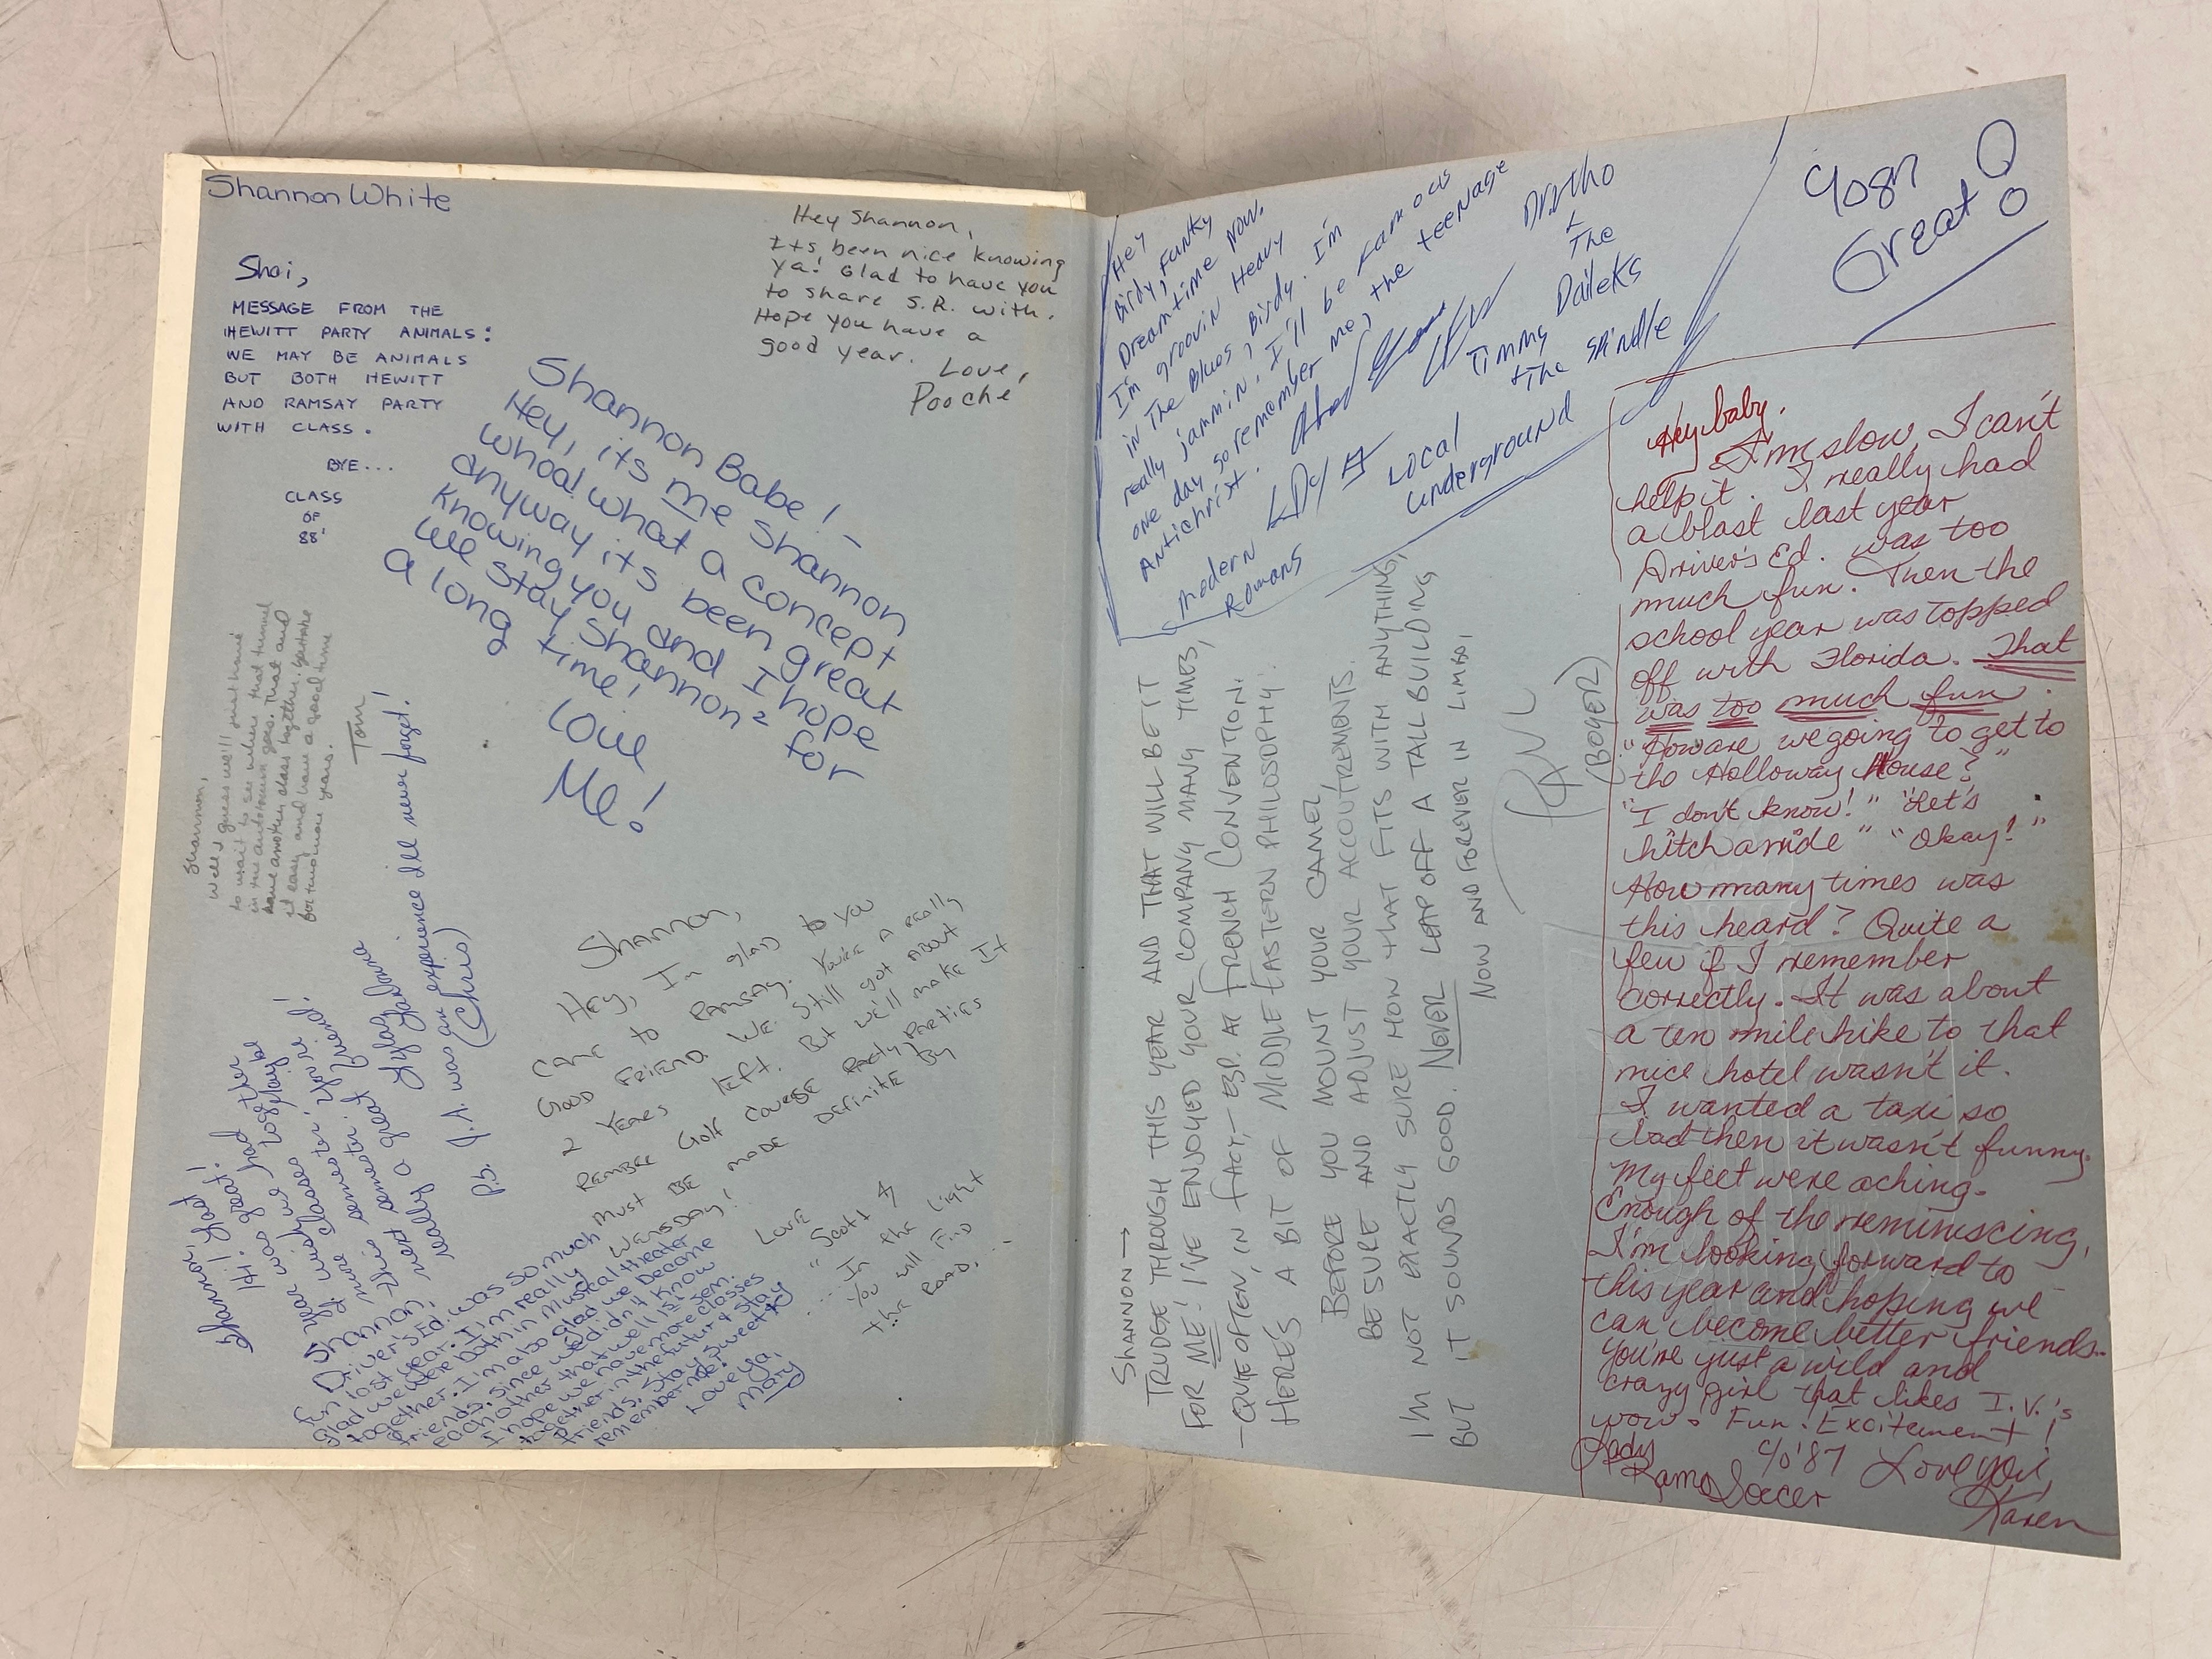 Shannon White
Shai,
MESSAGE FROM THE
HEWITT PARTY ANIMALS:
WE MAY BE ANIMALS
BUT BOTH HEWITT
AND RAMSAY PARTY
WITH CLASS.
BYE...
CLASS
OF
88'
Hey Shannon,
Its been nice knowing
ya! Glad to have you
to share S.R. with.
Hope you have a
good year.
Love,
Pooche
Shannon Babe! -
Hey, its me Shannon
whoa! what a concept
anyway its been great
knowing you and I hope
we stay Shannon² for
a long time!
Love
Me!
Shannon,
Well I guess we'll just have
to wait to see where that tunnel
in the autotown goes. That and
have another class together.
it easy and have a good time
for two more years.
Tom
Shannon,
Hey, Im glad to you
came to Ramsay. You're a really
good friend. We still got about
2 years left. But we'll make it
Rember Golf Course Party Parties
must be made definite by
Wensday!
Love
Scott
"... In the light
you will find
the road...
Shannon,
Hi! Great!
year was great had
P.S. J.A. was an experience Ill never forget!
(Chris)
Shannon,
Driver's Ed. was so much
fun last year. I'm really
glad we were both in Musical theater
together. I'm also glad we became
friends, since we didn't know
each other that well 1st sem.
I hope we have more classes
together in the futur & stay
friends. Stay sweet &
remember me!
Love ya,
Mary
Hey
Birdy, Funky
Dreamtime Now.
I'm groovin Heavy
in The Blues, Birdy. I'm
really jammin, I'll be famous
one day so remember me, the teenage
Antichrist.
Modern
Romans
Local
Underground
Timmy
+ The Spindle
Ortho
+
The
Daileks
Yosh
Great!!
SHANNON →
TRUDGE THROUGH THIS YEAR AND THAT WILL BE IT
FOR ME! I'VE ENJOYED YOUR COMPANY MANY TIMES,
— QUITE OFTEN, IN FACT, — ESP. AT FRENCH CONVENTION.
HERE'S A BIT OF MIDDLE EASTERN PHILOSOPHY:
BEFORE YOU MOUNT YOUR CAMEL,
BE SURE AND ADJUST YOUR ACCOUTREMENTS.
I'M NOT EXACTLY SURE HOW THAT FITS WITH ANYTHING,
BUT IT SOUNDS GOOD. NEVER LEAP OFF A TALL BUILDING
NOW AND FOREVER IN LIMBO,
PAUL
(BOYER)
Hey baby,
I'm slow I can't
help it. I really had
a blast last year
Driver's Ed. was too
much fun. Then the
school year was topped
off with Florida. That
was too much fun.
"How are we going to get to
the Holloway House?"
"I don't know!" "Let's
hitch a ride" "Okay!"
How many times was
this heard? Quite a
few if I remember
correctly. It was about
a ten mile hike to that
nice hotel wasn't it.
I wanted a taxi so
bad then it wasn't funny.
My feet were aching.
Enough of the reminiscing,
I'm looking forward to
this year and hoping we
can become better friends.
You're just a wild and
crazy girl that likes I.V.'s
wow. Fun! Excitement!
Lady
Rams Soccer
c/o '87
Love you,
Karen